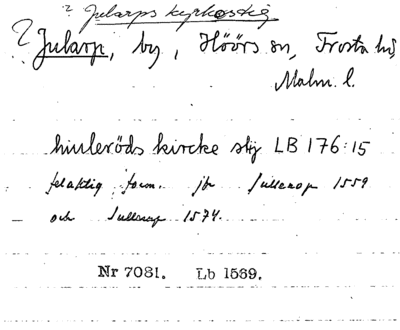 ? Jularps kyrkostig
? Jularp, by, Höörs sn, Frosta hd
Malm. l.
hiuleröds kircke stij LB 176:15
felaktig form. jfr Jullerop 1559
och Jullerup 1574.
Nr 7081. Lb 1569.